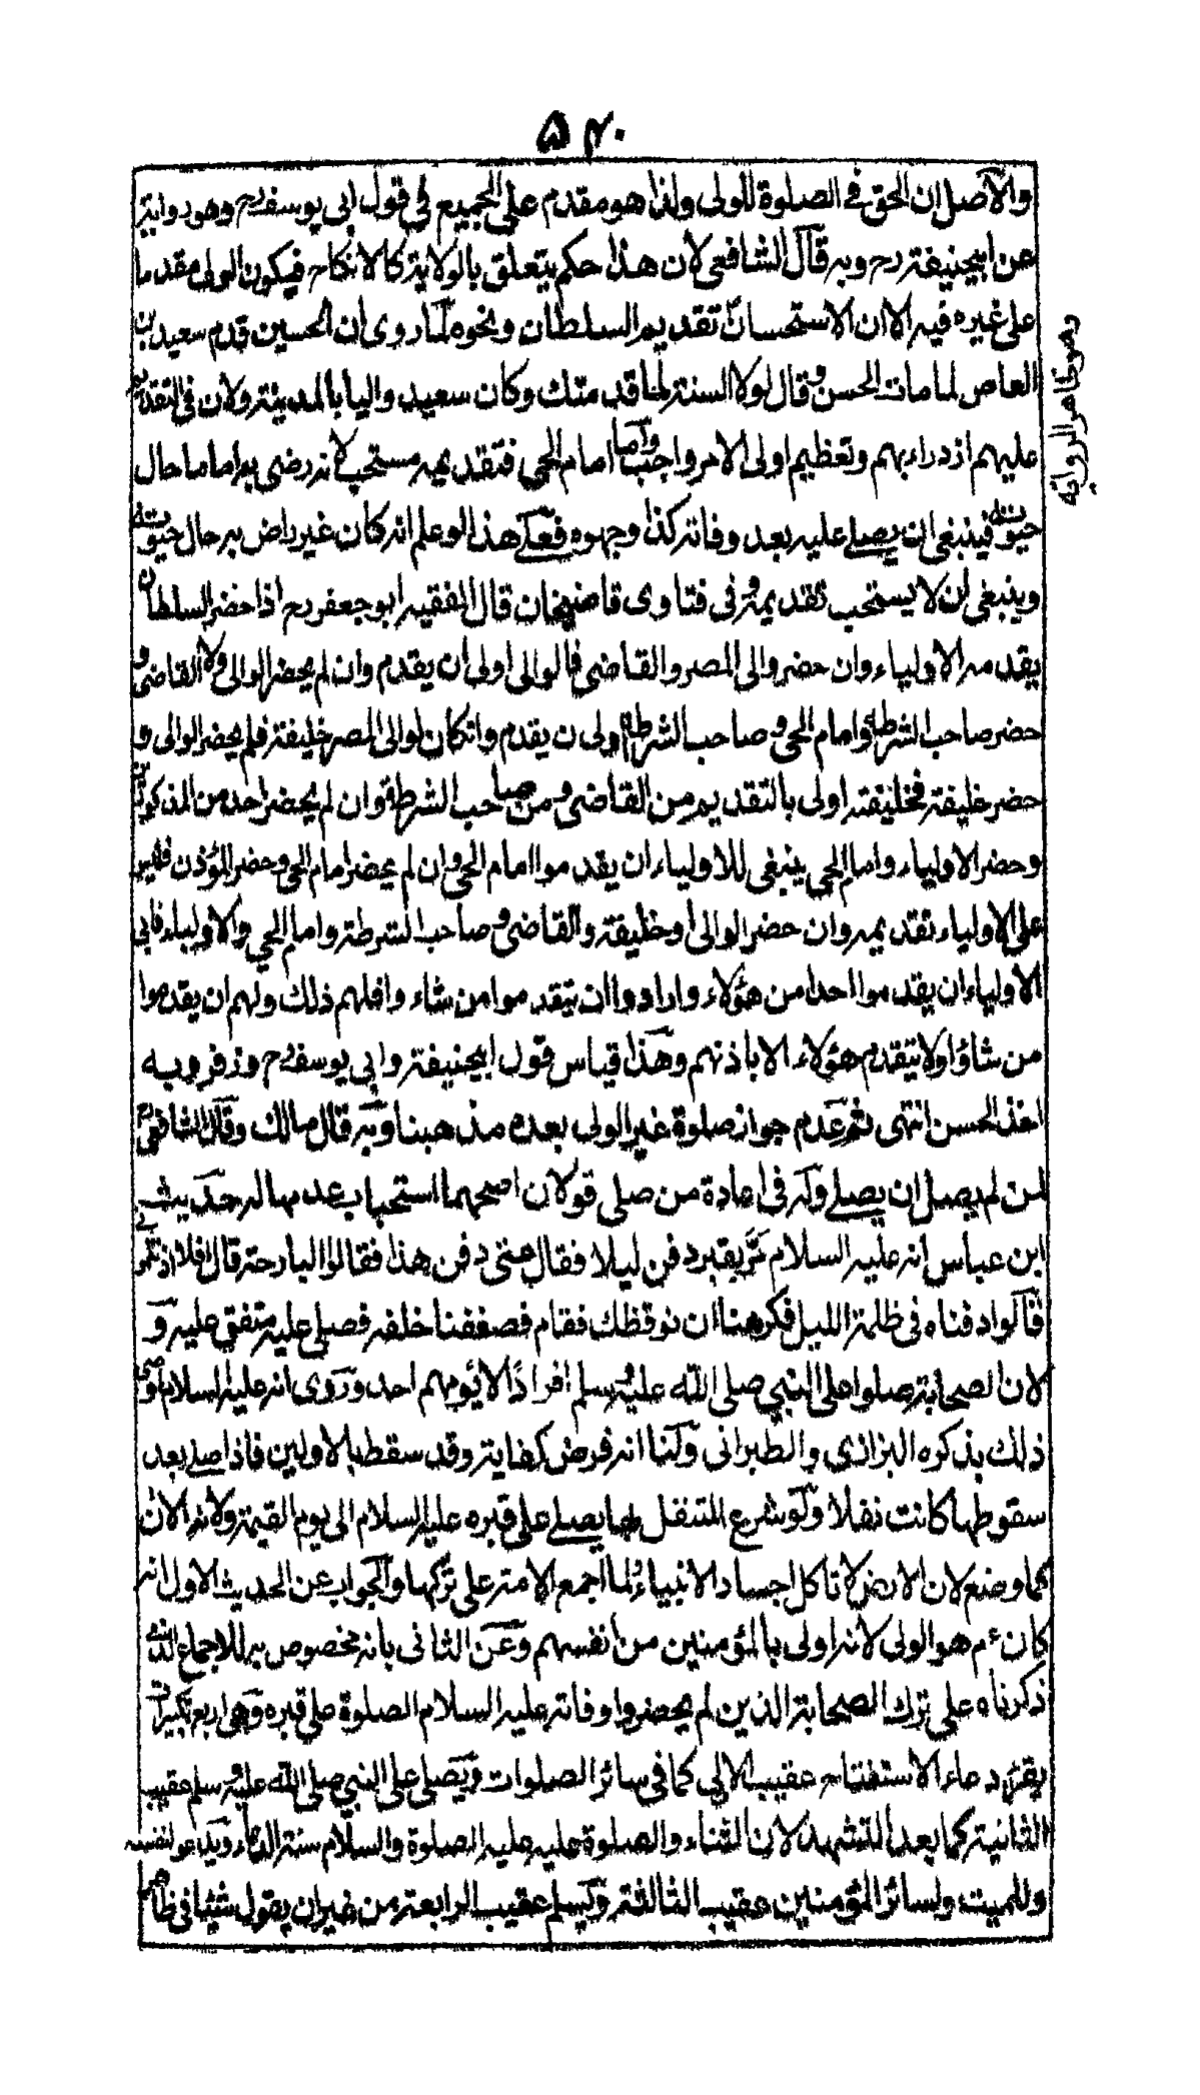 ۵۴۰
والاصل ان الحق في الصلوة للولى ولذا هو مقدم على الجميع في قول ابى يوسف رح وهو رواية
عن ابيحنيفة رح وبه قال الشافعى لان هذا حكم يتعلق بالولاية كالانكاح فيكون الولى مقدما
على غيره فيه الا ان الاستحسان تقديم السلطان ونحوه لما روى ان الحسين قدم سعيد بن
العاص لما مات الحسن وقال لولا السنة لما قدمتك وكان سعيد واليا بالمدينة ولان فى التقدم
عليهم ازدراء بهم وتعظيم اولى الامر واجب واما امام الحى فتقديمه مستحب لانه رضى به اماما حال
حيوته فينبغى ان يصلے عليه بعد وفاته كذا وجهوه فعلے هذا لو علم انه كان غير راض به حال حيوته
وينبغى ان لا يستحب تقديمه وفى فتاوى قاضيخان قال الفقيه ابو جعفر رح اذا حضر السلطان
يقدمه الاولياء وان حضر والى المصر والقاضى فالوالى اولى ان يقدم وان لم يحضر الوالى ولا القاضى و
حضر صاحب الشرطة وامام الحى وصاحب الشرطة اولى ن يقدم وانكان لوالى المصر خليفة فلم يحضر الوالى و
حضر خليفته فخليفته اولى بالتقديم من القاضى ومن صاحب الشرطة وان لم يحضر احد من المذكورين
وحضر الاولياء وامام الحى ينبغى للاولياء ان يقدموا امام الحى وان لم يحضر امام الحى وحضر المؤذن فليس
على الاولياء تقديمه وان حضر الوالى او خليفته والقاضى وصاحب الشرطة وامام الحي والاولياء فابى
الاولياء ان يقدموا احدا من هؤلاء وارادوا ان يتقدموا من شاء وا فلهم ذلك ولهم ان يقدموا
من شاؤا ولا يتقدم هؤلاء الا باذنهم وهذا قياس قول ابيحنيفة وابى يوسف رح وزفر وبه
اخذ الحسن انتهى ثم عدم جواز صلوة غير الولى بعده مذهبنا وبه قال مالك وقال الشافعى رح
لمن لم يصل ان يصلے وله فى اعادة من صلى قولان اصحهما استحباب عدمها له حديث
ابن عباس انه عليه السلام مر بقبر دفن ليلا فقال متى دفن هذا فقالوا البارحة قال افلا اذنتمونى
قالوا دفناه فى ظلمة الليل فكرهنا ان نوقظك فقام فصففنا خلفه فصلى عليه متفق عليه و
لان الصحابة صلوا على النبي صلى الله عليه وسلم افرادًا لا يؤمهم احد وروى انه عليه السلام اوصى
ذلك بذكره البزازى والطبرانى ولنا انه فرض كفاية وقد سقط بالاولين فاذا صلے بعد
سقوطها كانت نفلا ولو شرع المتنفل بها يصلے على قبره عليه السلام الى يوم القيمة ولانه الان
كما وضع لان الارض لا تاكل اجساد الانبياء ولما اجمع الامة على تركها والجواب عن الحديث الاول انه
كان ءم هو الولى لانه اولى بالمؤمنين من انفسهم وعن الثانى بانه مخصوص به للاجماع الذى
ذكرناه على ترك الصحابة الذين لم يحضروا وفاته عليه السلام الصلوة على قبره وهى اربع تكبيرات
يقرء دعاء الاستفتاح عقيب الاولى كما فى سائر الصلوات ويصلى على النبي صلى الله عليه وسلم عقيب
الثانية كما بعد التشهد لان الثناء والصلوة عليه عليه الصلوة والسلام سنة الدعاء ويدعو لنفسه
وللميت ولسائر المؤمنين عقيب الثالثة ويسلم عقيب الرابعة من غير ان يقول شيئا فى ظاهر
وهو ظاهر الرواية